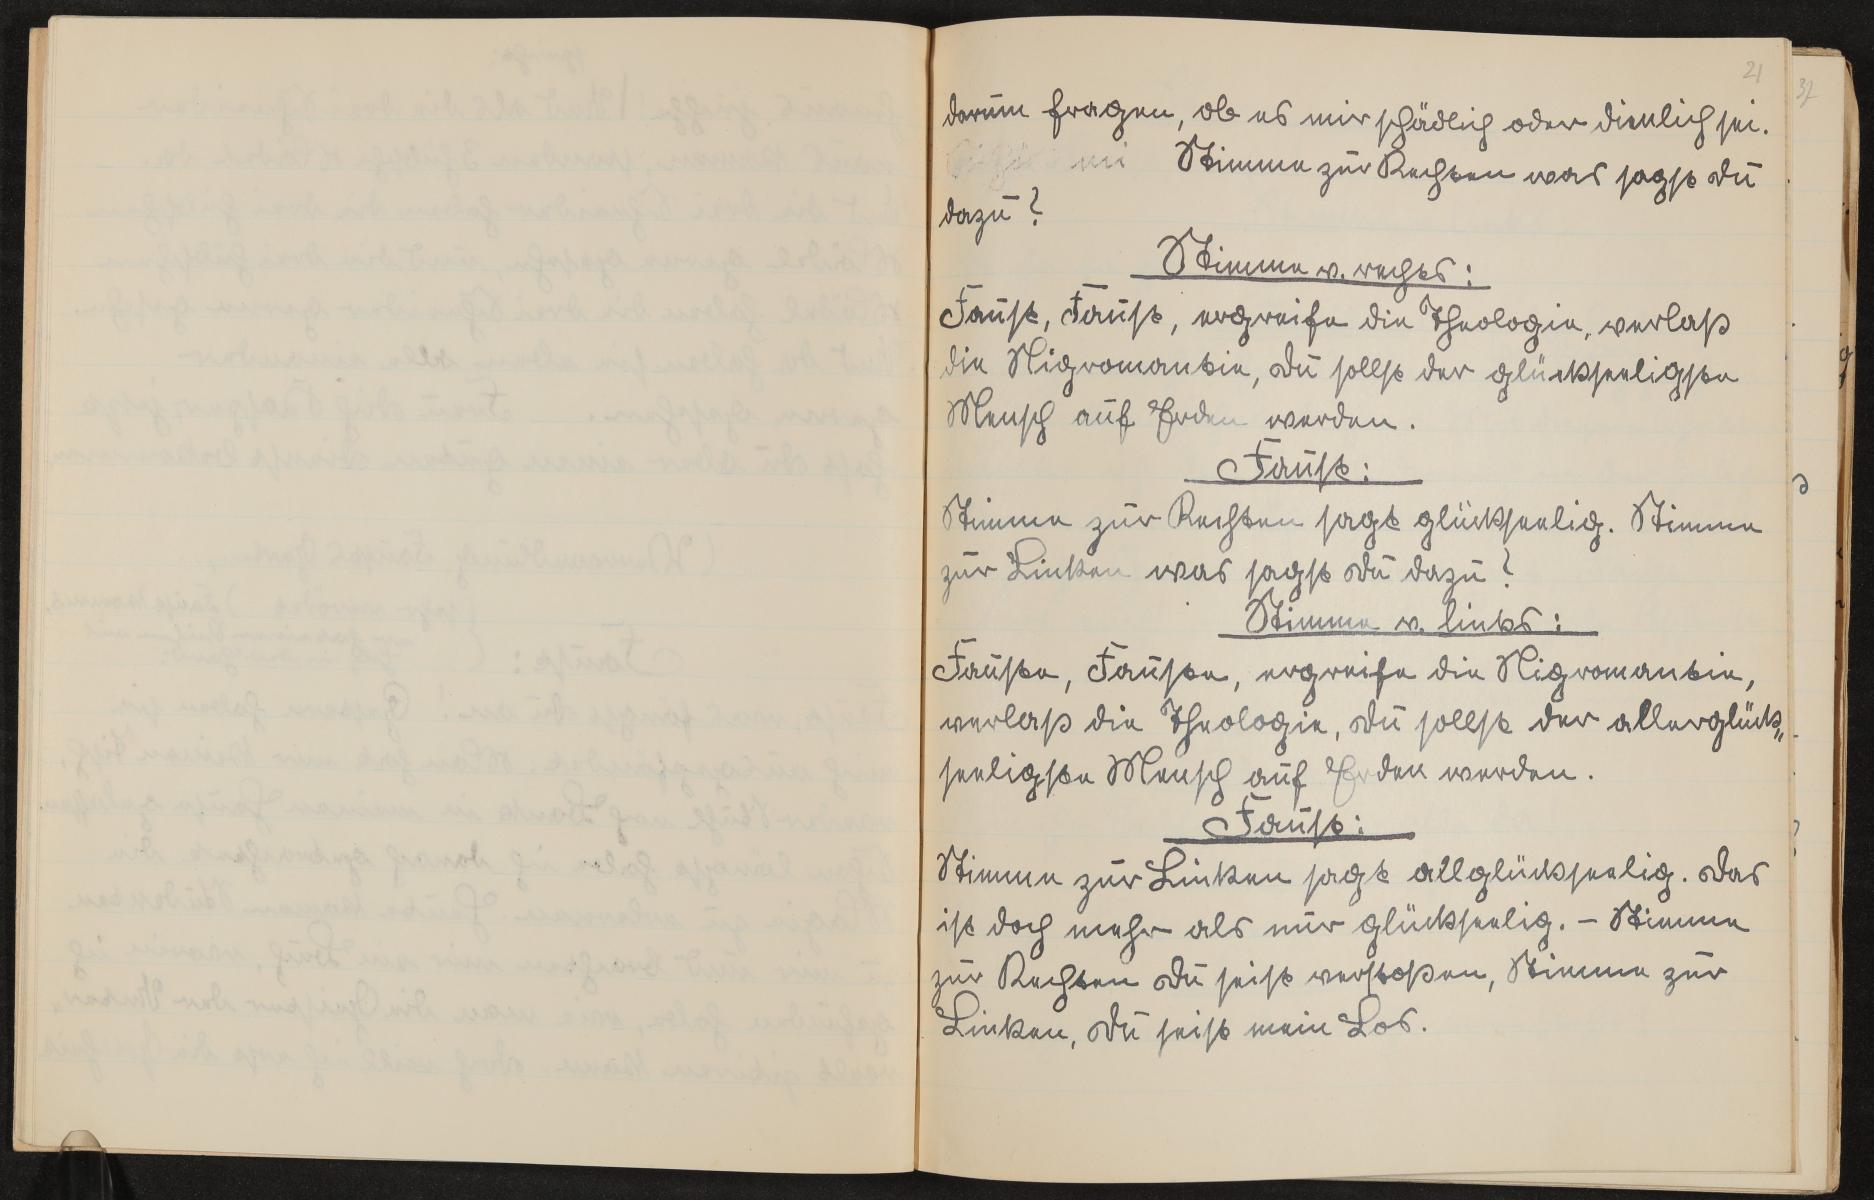 21
37
darum fragen, ob es mir schädlich oder dienlich sei.
Stimme zur Rechten was sagst du
dazu?
Stimme v. rechts:
Faust, Faust, ergreife die Theologie, verlaß
die Nigromantie, du sollst der glückseeligste
Mensch auf Erden werden.
Faust:
Stimme zur Rechten sagt glückseelig. Stimme
zur Linken was sagst du dazu?
Stimme v. links:
Fauste, Fauste, ergreife die Nigromantie,
verlaß die Theologie, du sollst der allerglück„
seeligste Mensch auf Erden werden.
Faust:
Stimme zur Linken sagt allglückseelig. Das
ist doch mehr als nur glückseelig. – Stimme
zur Rechten du seist verstoßen, Stimme zur
Linken, du seist mein Los.